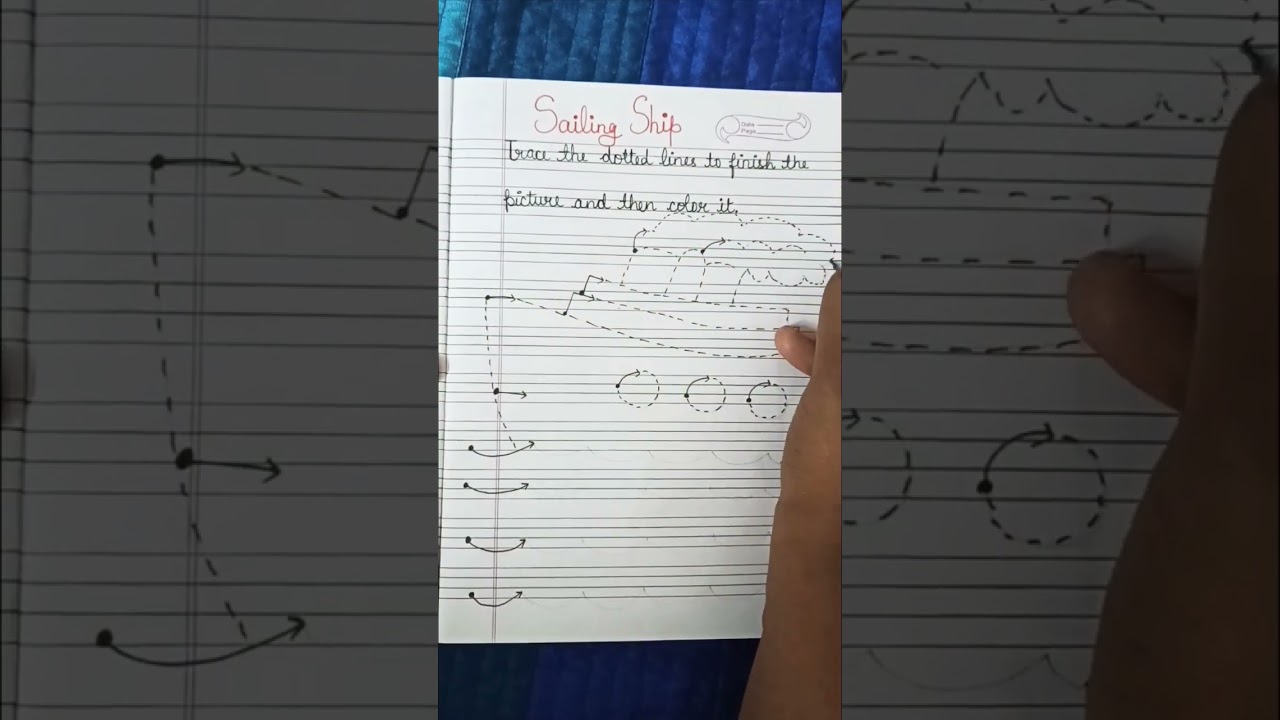 Sailing Ship
Date
Page
Trace the dotted lines to finish the
picture and then color it.